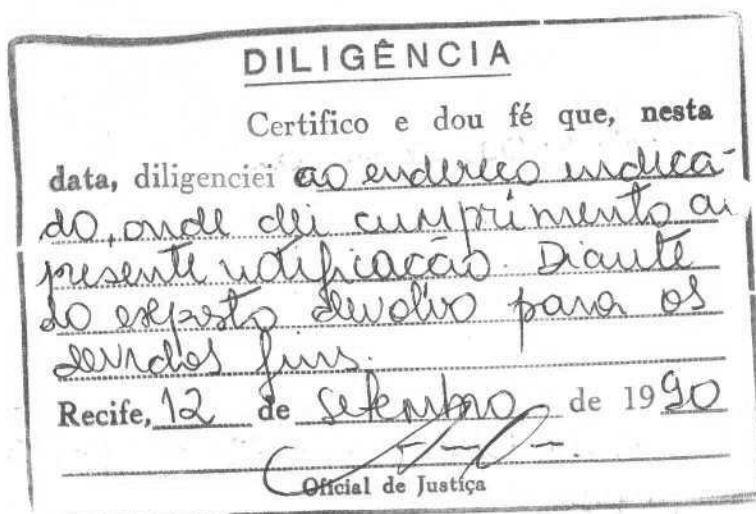 DILIGÊNCIA
Certifico e dou fé que, nesta
data, diligenciei ao endereço indica-
do, onde dei cumprimento a
presente notificação. Diante
do exposto devolvo para os
devidos fins.
Recife, 12 de setembro de 1990
Oficial de Justiça